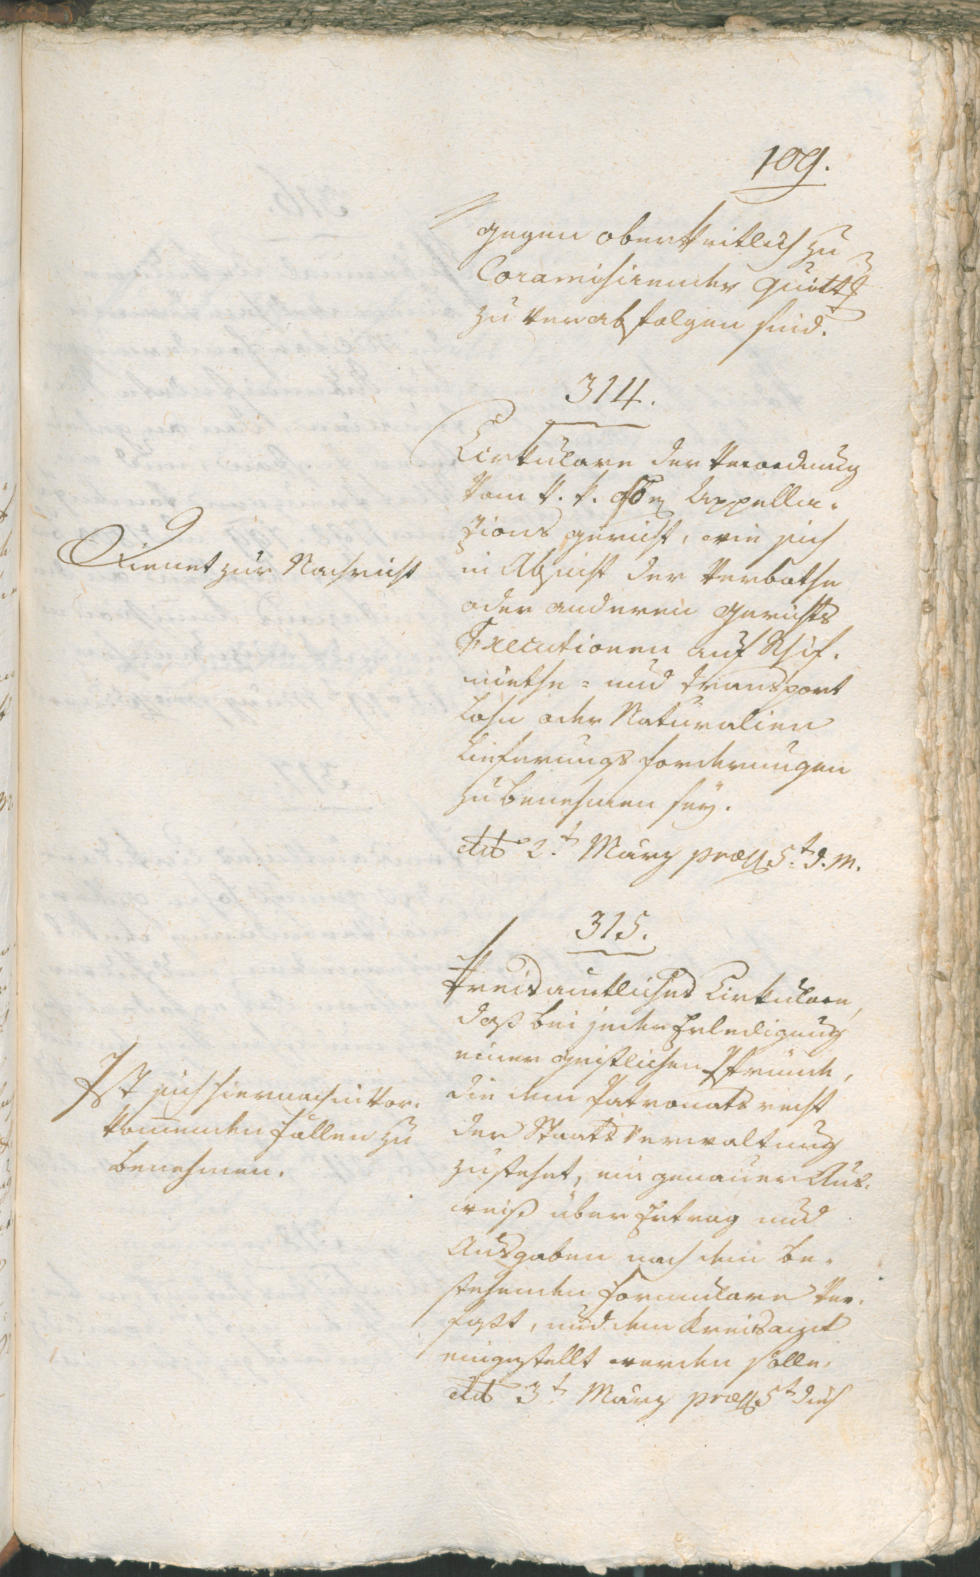 109.
gegen obrigkeitlich zu
Coramisirender Quittg
zu verabfolgen sind.
314.
Cirkulare der Verordnung
vom k. k. Appella-
zions gericht, wie sich
in Absicht der Verbothe
oder anderen Gerichts
Executionen auf Schif-
miethe = und transport
Lohn oder Naturalien
Lieferungs forderungen
zu benehmen sey.
ddto 2.t März præs 5.t d. M.
Dienet zur Nachricht
315.
Kreisamtliches Cirkulare,
daß bei jeder Erledigung
einer geistlichen Pfründe,
die dem Patronats recht
der Staats Verwaltung
zustehet, ein genauer Aus-
weiß über Ertrag und
Ausgaben nach dem be-
stehenden Formulare ver-
faßt, und dem Kreisamt
eingestellt werden solle.
ddto 3.t März præs 5.t dies
Ist sich hiernach in vor-
kommenden Fällen zu
benehmen.